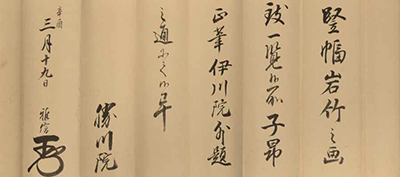 竪幅岩竹之画
致一覧候処子昂
正筆伊川院外題
之通ニ候畢
勝川院
辛酉
三月十九日
雅信